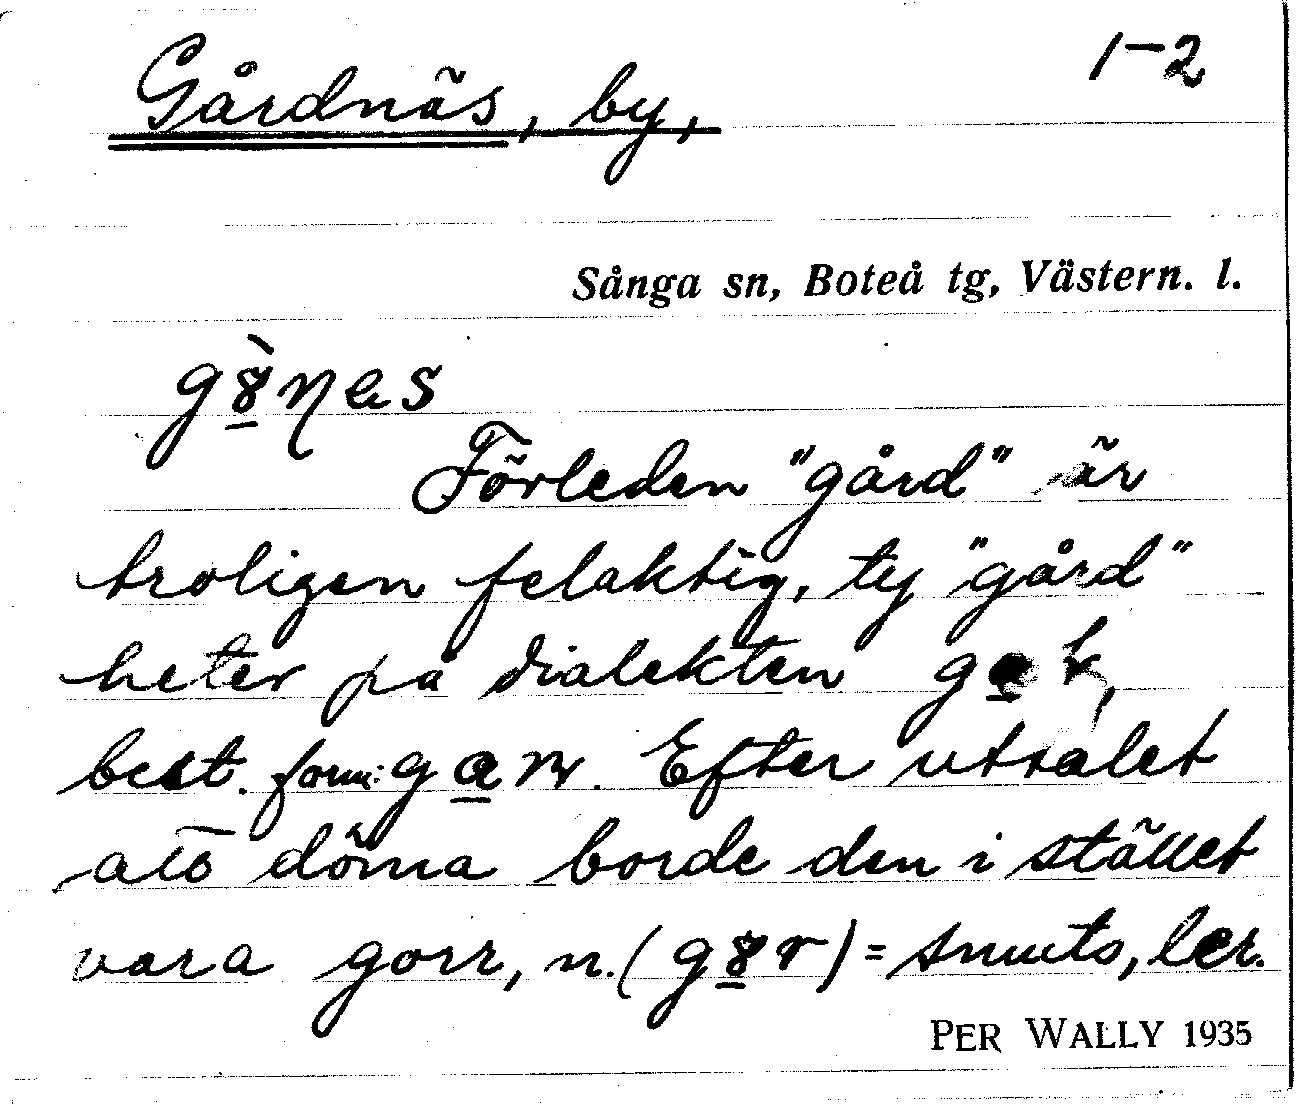 Gårdnäs, by,
1-2
Sånga sn, Boteå tg, Västern. l.
Förleden "gård" är
troligen felaktig, ty "gård"
heter på dialekten
best. form: gan. Efter uttalet
att döma borde den i stället
vara gorr, n. (g8r) = smuts, ler.
PER WALLY 1935